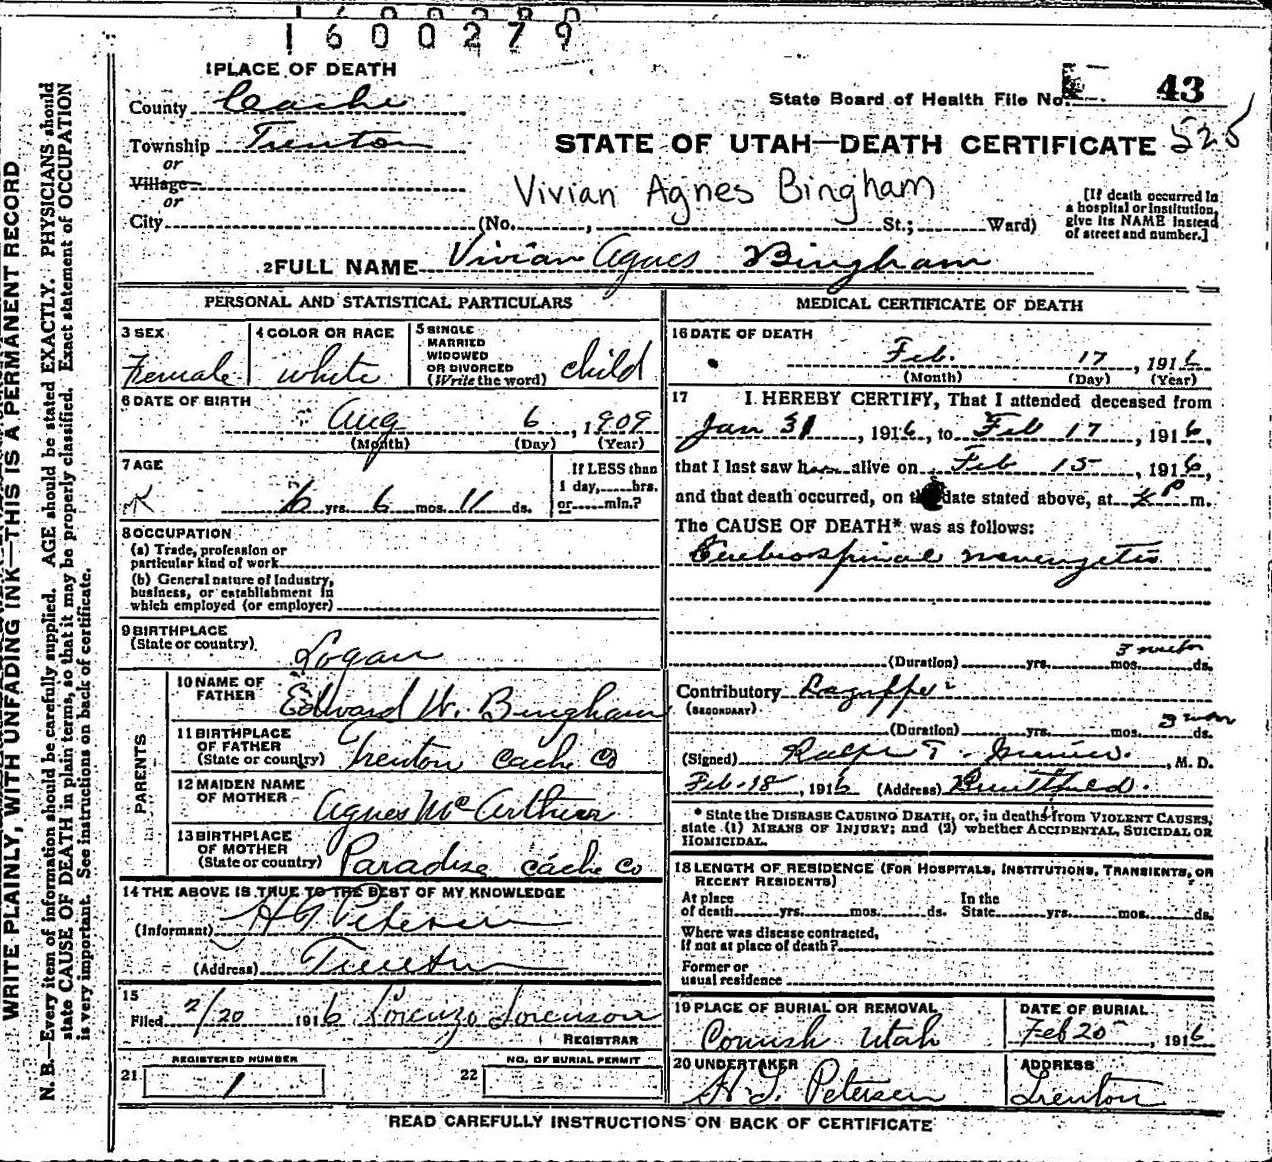 1600279
1 PLACE OF DEATH
State Board of Health File No. 43
County Cache
STATE OF UTAH—DEATH CERTIFICATE 525
Township Trenton
or
Village
or
Vivian Agnes Bingham
[If death occurred in
a hospital or institution,
give its NAME instead
of street and number.]
City (No. , St.; Ward)
2 FULL NAME Vivian Agnes Bingham
PERSONAL AND STATISTICAL PARTICULARS
3 SEX
Female
4 COLOR OR RACE
white
5 SINGLE
MARRIED
WIDOWED
OR DIVORCED
(Write the word) child
6 DATE OF BIRTH
Aug 6, 1909
(Month) (Day) (Year)
7 AGE
6 yrs. 6 mos. 11 ds.
If LESS than
1 day, hrs.
or min.?
8 OCCUPATION
(a) Trade, profession or
particular kind of work
(b) General nature of Industry,
business, or establishment in
which employed (or employer)
9 BIRTHPLACE
(State or country)
Logan
PARENTS
10 NAME OF
FATHER Edward W. Bingham
11 BIRTHPLACE
OF FATHER
(State or country) Trenton Cache Co
12 MAIDEN NAME
OF MOTHER Agnes McArthur
13 BIRTHPLACE
OF MOTHER
(State or country) Paradise Cache Co
14 THE ABOVE IS TRUE TO THE BEST OF MY KNOWLEDGE
(Informant) Petersen
(Address) Trenton
15
Filed 2/20 1916 Lorenzo Sorenson
REGISTRAR
REGISTERED NUMBER
21 1
NO. OF BURIAL PERMIT
22
MEDICAL CERTIFICATE OF DEATH
16 DATE OF DEATH
Feb. 17, 1916
(Month) (Day) (Year)
17 I HEREBY CERTIFY, That I attended deceased from
Jan 31, 1916, to Feb 17, 1916,
that I last saw h alive on Feb 15, 1916,
and that death occurred, on the date stated above, at P m.
The CAUSE OF DEATH* was as follows:
Cerebrospinal
(Duration) yrs. mos. 3 ds.
Contributory Lagrippe
(SECONDARY)
(Duration) yrs. mos. 3 ds.
(Signed) Ralph T. , M. D.
Feb-18, 1916 (Address)
* State the DISEASE CAUSING DEATH, or, in deaths from VIOLENT CAUSES,
state (1) MEANS OF INJURY; and (2) whether ACCIDENTAL, SUICIDAL OR
HOMICIDAL.
18 LENGTH OF RESIDENCE (FOR HOSPITALS, INSTITUTIONS, TRANSIENTS, OR
RECENT RESIDENTS)
At place
of death yrs. mos. ds.
In the
State yrs. mos. ds.
Where was disease contracted,
if not at place of death?
Former or
usual residence
19 PLACE OF BURIAL OR REMOVAL
Cornish Utah
DATE OF BURIAL
Feb 20, 1916
20 UNDERTAKER
Petersen
ADDRESS
Trenton
READ CAREFULLY INSTRUCTIONS ON BACK OF CERTIFICATE
WRITE PLAINLY, WITH UNFADING INK—THIS IS A PERMANENT RECORD
N. B.—Every item of information should be carefully supplied. AGE should be stated EXACTLY. PHYSICIANS should
state CAUSE OF DEATH in plain terms, so that it may be properly classified. Exact statement of OCCUPATION
is very important. See instructions on back of certificate.